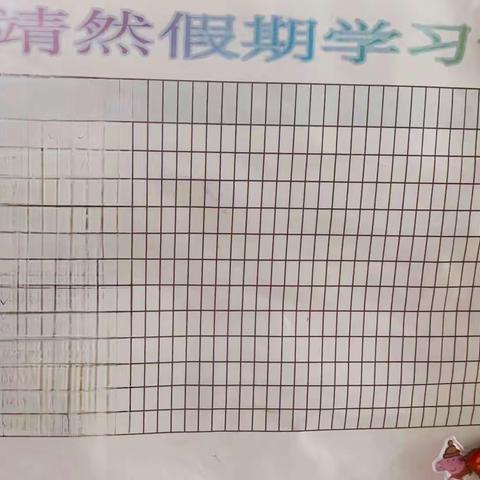 靖然假期学习